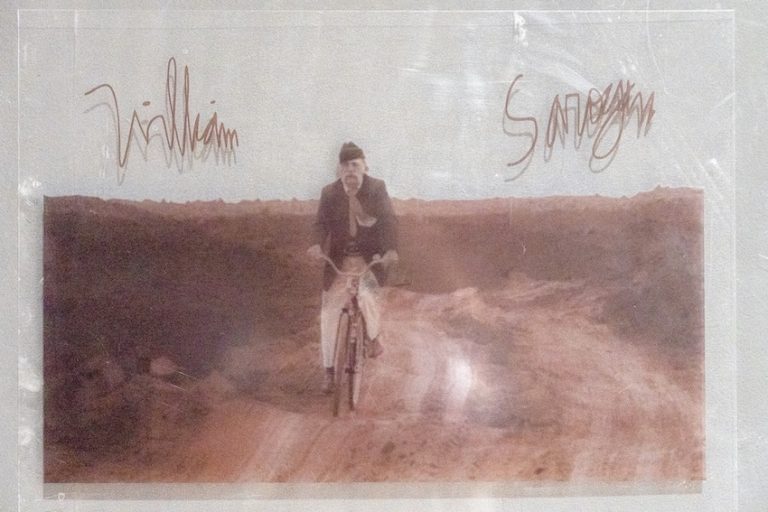 William Saroyan